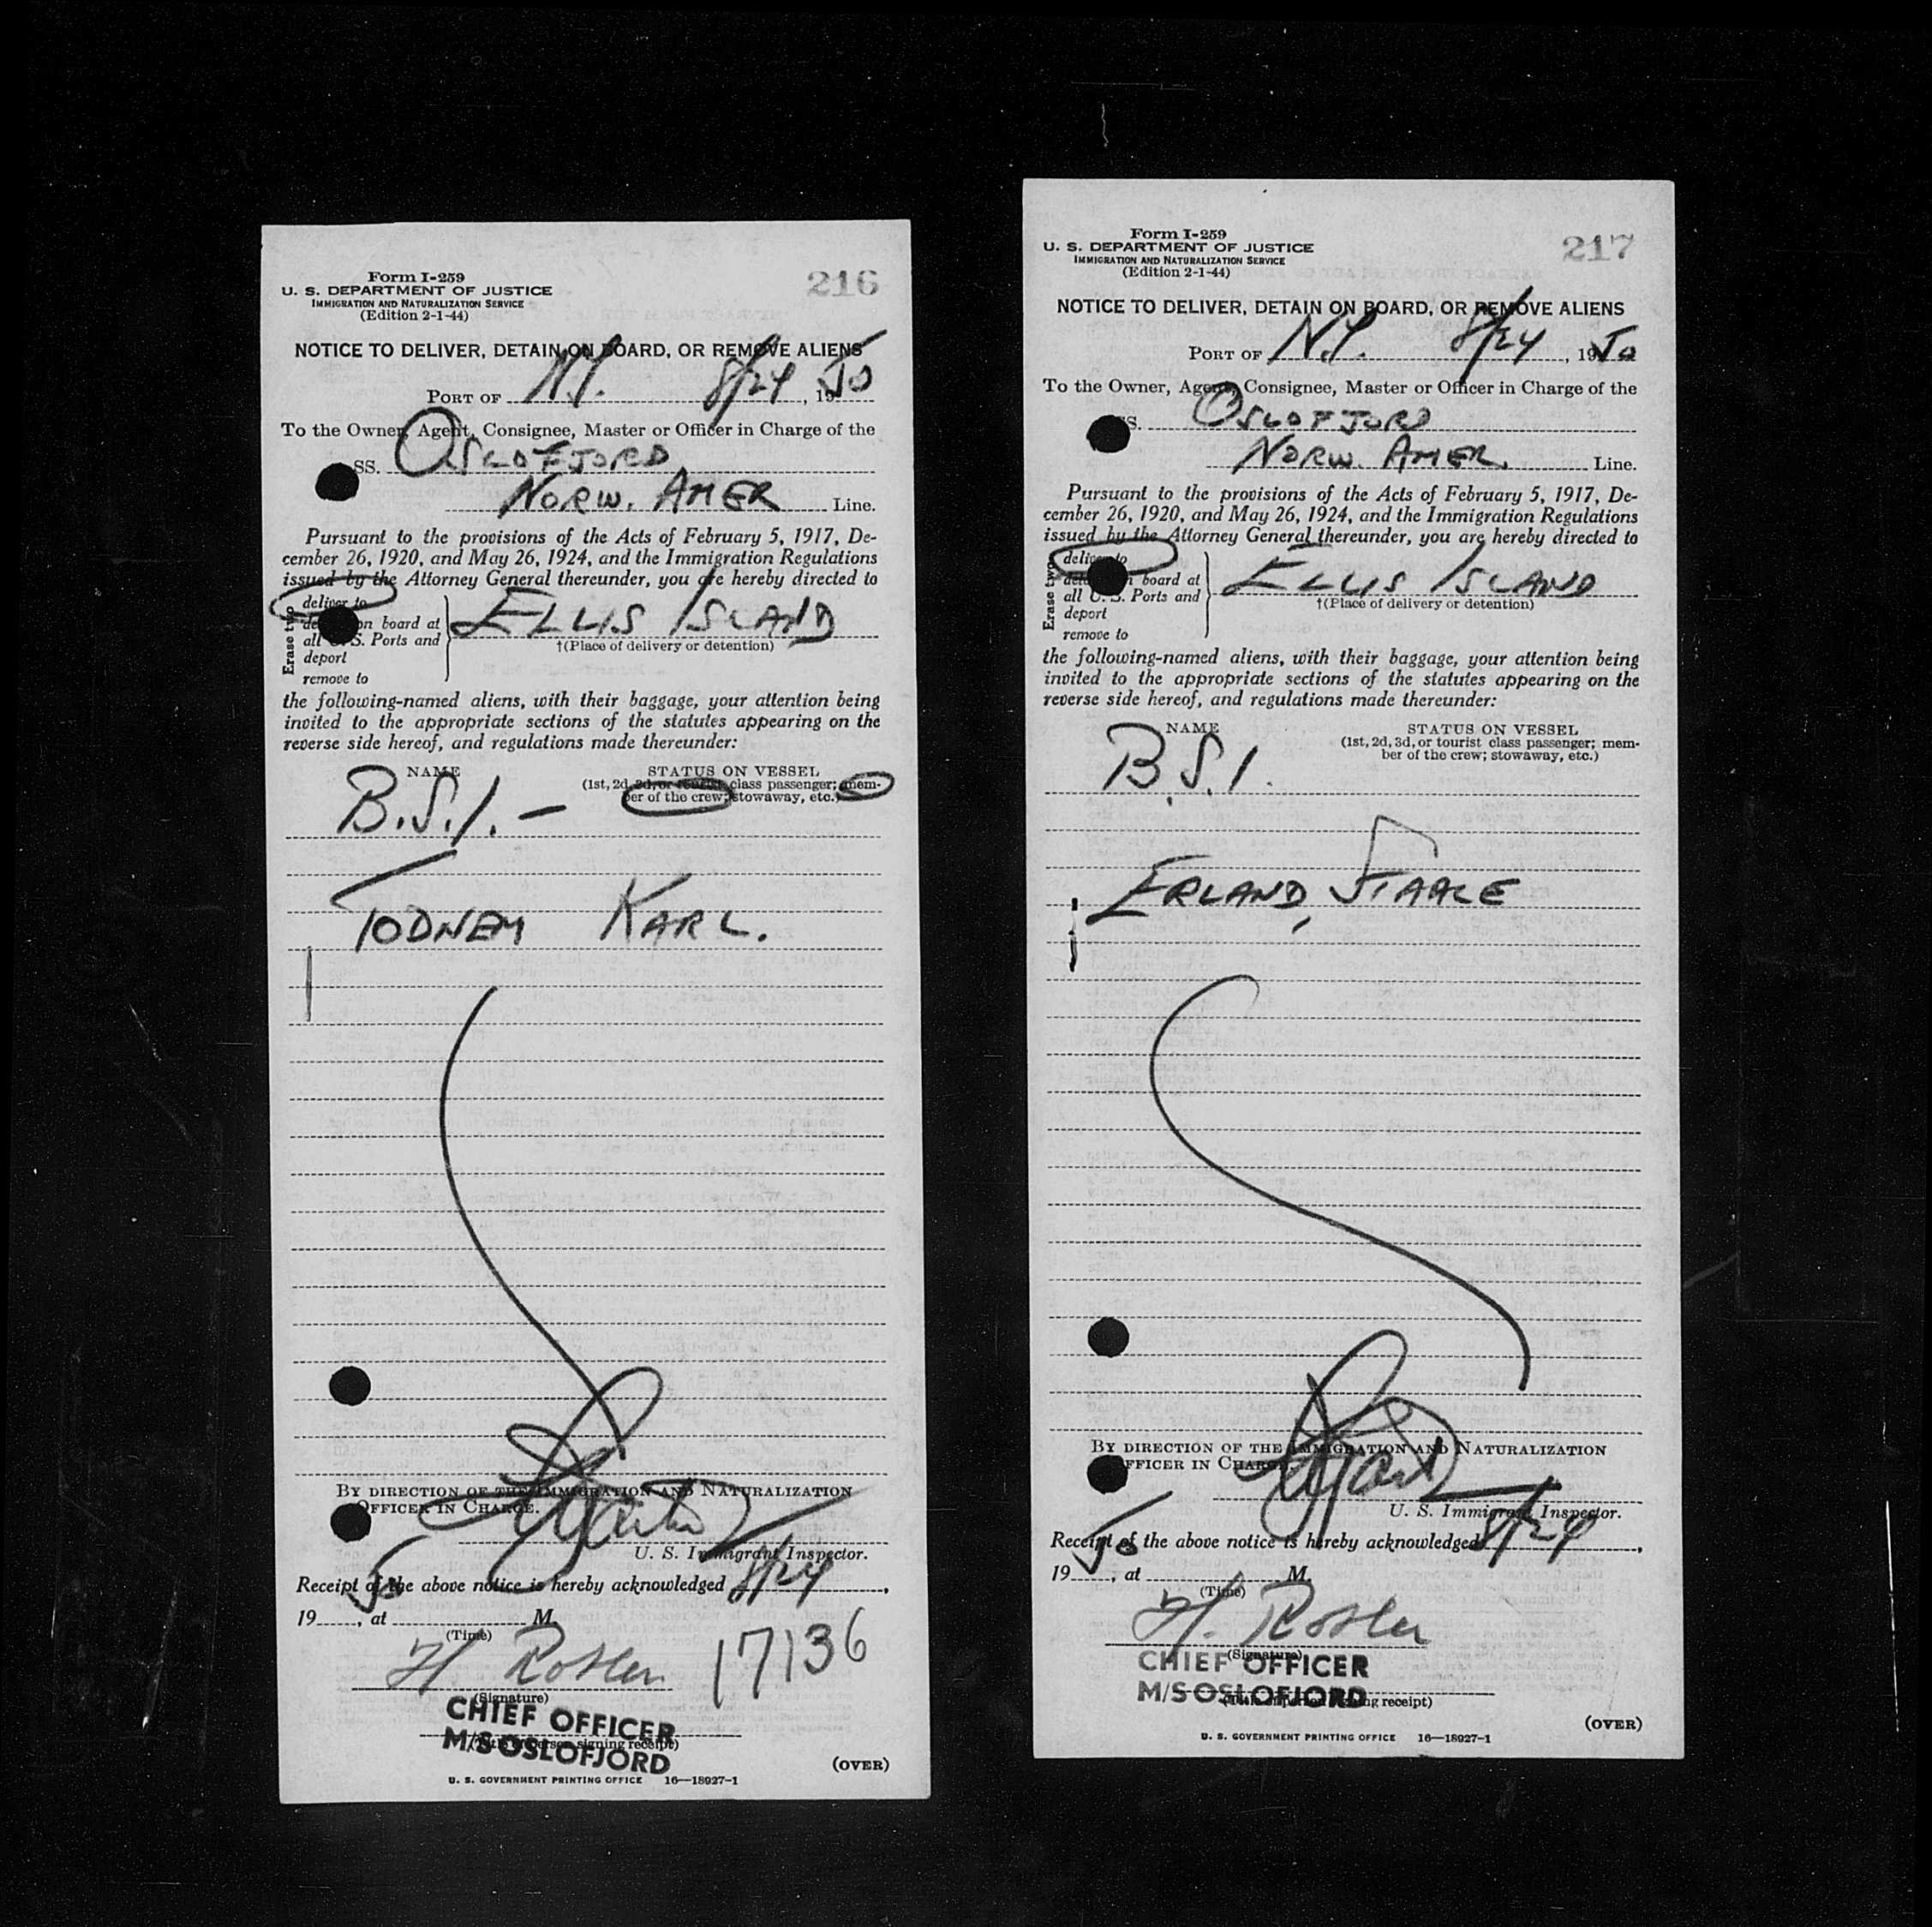 216
Form I-259
U. S. DEPARTMENT OF JUSTICE
IMMIGRATION AND NATURALIZATION SERVICE
(Edition 2-1-44)
NOTICE TO DELIVER, DETAIN ON BOARD, OR REMOVE ALIENS
PORT OF N.Y. 8/24, 1950
To the Owner, Agent, Consignee, Master or Officer in Charge of the
SS. OSLOFJORD
NORW. AMER Line.
Pursuant to the provisions of the Acts of February 5, 1917, De-
cember 26, 1920, and May 26, 1924, and the Immigration Regulations
issued by the Attorney General thereunder, you are hereby directed to
Erase two
deliver to
on board at
all U. S. Ports and
deport
remove to
ELLIS ISLAND
†(Place of delivery or detention)
the following-named aliens, with their baggage, your attention being
invited to the appropriate sections of the statutes appearing on the
reverse side hereof, and regulations made thereunder:
NAME STATUS ON VESSEL
(1st, 2d, 3d, or tourist class passenger; mem-
ber of the crew; stowaway, etc.)
B.S.I. —
TODNEM KARL.
BY DIRECTION OF THE IMMIGRATION AND NATURALIZATION
OFFICER IN CHARGE.
U. S. Immigrant Inspector.
Receipt of the above notice is hereby acknowledged 8/24,
1950, at M.
(Time)
H. 17136
(Signature)
CHIEF OFFICER
M/S OSLOFJORD
(Title of person signing receipt)
(OVER)
U. S. GOVERNMENT PRINTING OFFICE 16—18927-1
217
Form I-259
U. S. DEPARTMENT OF JUSTICE
IMMIGRATION AND NATURALIZATION SERVICE
(Edition 2-1-44)
NOTICE TO DELIVER, DETAIN ON BOARD, OR REMOVE ALIENS
PORT OF N.Y. 8/24, 1950
To the Owner, Agent, Consignee, Master or Officer in Charge of the
SS. OSLOFJORD
NORW. AMER. Line.
Pursuant to the provisions of the Acts of February 5, 1917, De-
cember 26, 1920, and May 26, 1924, and the Immigration Regulations
issued by the Attorney General thereunder, you are hereby directed to
Erase two
deliver to
board at
all U. S. Ports and
deport
remove to
ELLIS ISLAND
†(Place of delivery or detention)
the following-named aliens, with their baggage, your attention being
invited to the appropriate sections of the statutes appearing on the
reverse side hereof, and regulations made thereunder:
NAME STATUS ON VESSEL
(1st, 2d, 3d, or tourist class passenger; mem-
ber of the crew; stowaway, etc.)
B.S.I.
ERLAND, STAALE
BY DIRECTION OF THE IMMIGRATION AND NATURALIZATION
OFFICER IN CHARGE.
U. S. Immigrant Inspector.
Receipt of the above notice is hereby acknowledged 8/24,
1950, at M.
(Time)
H.
(Signature)
CHIEF OFFICER
M/S OSLOFJORD
(Title of person signing receipt)
(OVER)
U. S. GOVERNMENT PRINTING OFFICE 16—18927-1